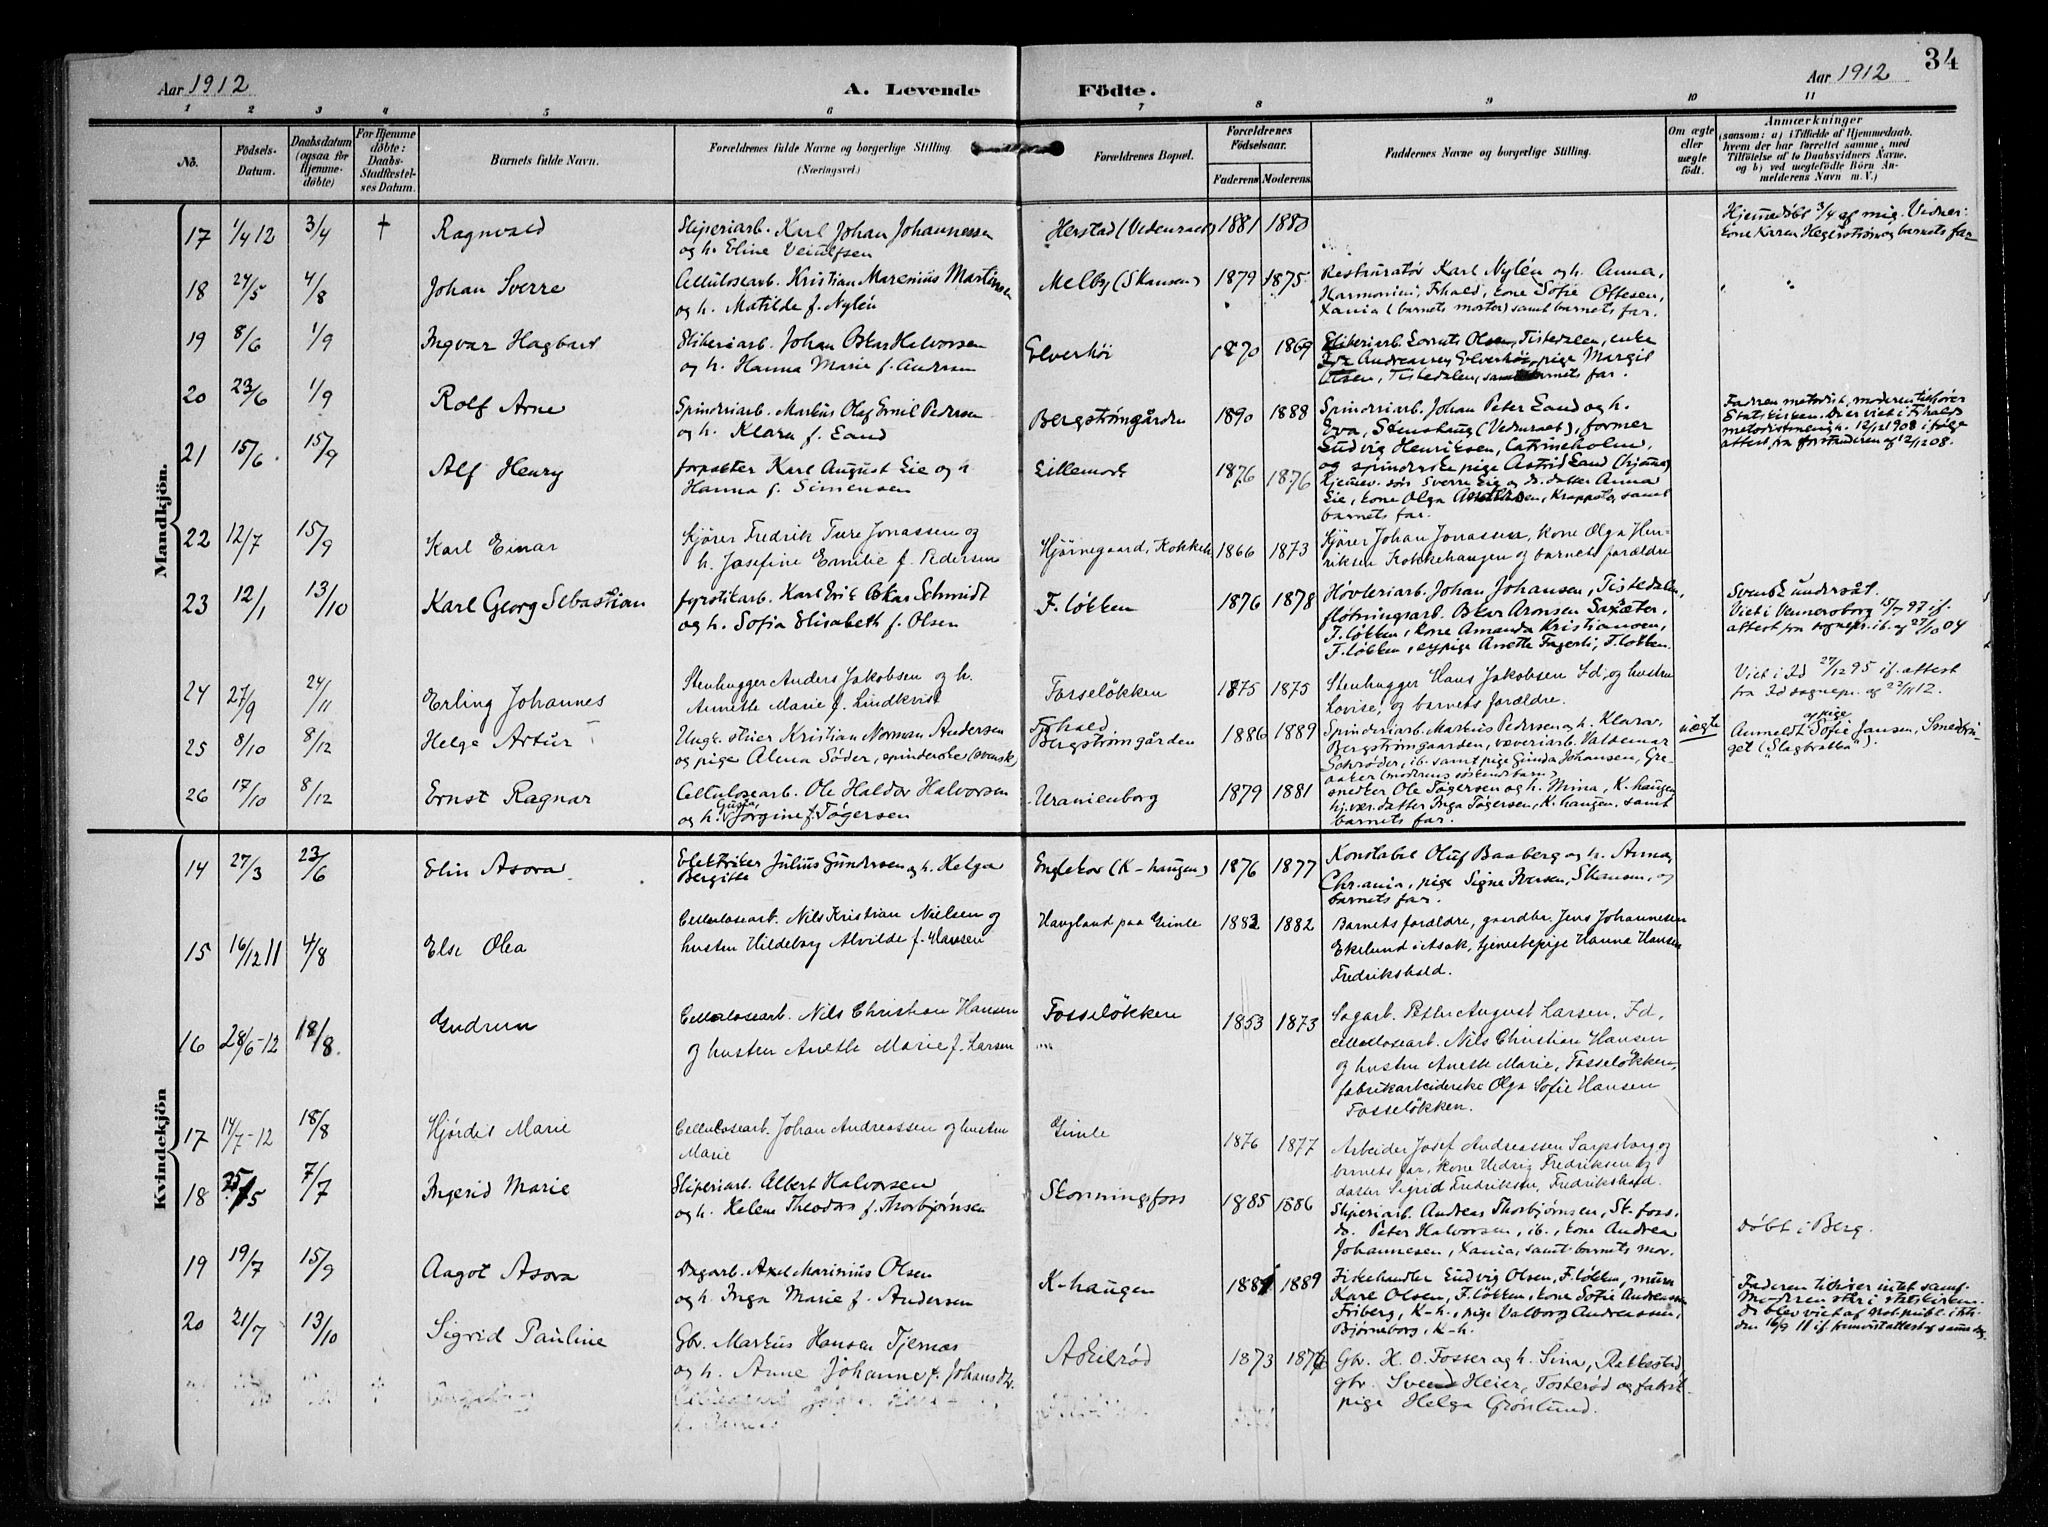 34
Aar 1912
A. Levende
Födte.
Aar 1912
1 2 3 4 5 6 7 8 9 10 11
No.
Födsels-Datum.
Daabsdatum (ogsaa for Hjemme-döbte)
For Hjemme döbte: Daabs-Stadfæstel-ses Datum.
Barnets fulde Navn.
Forældrenes fulde Navne og borgerlige Stilling. (Næringsvei.)
Forældrenes Bopæl.
Forældrenes Födselsaar.
Faderens Moderens.
Faddernes Navne og borgerlige Stilling.
Om ægte eller uægte födt.
Anmærkninger
(saasom: a) i Tilfælde af Hjemmedaab, hvem der har forrettet samme, med Tilföielse af to Daabsvidners Navne, og b) ved uægtefödte Börn An-melderens Navn m. V.)
Mandkjön.
17 1/4 12 3/4 † Ragnvald Sliperiarb. Karl Johan Johannessen Herstad (Vedenraet) 1881 1880 Hjemmedöbt 3/4 af mig. Vidner:
og h. Eline Veiulfsen Kone Karen Hegerstrøm og barnets far
18 24/5 4/8 Johan Sverre Cellulosearb. Kristian Marenius Martinsen Melby (Skansen) 1879 1875 Restauratør Karl Nylén og h. Anna,
og h. Matilde f. Nylén Harmonien, Fhald, kone Sofie Ottesen,
Xania (barnets moster) samt barnets far.
19 8/6 1/9 Ingvar Hagbart Sliberiarb. Johan Oskar Halvorsen Elverhöi 1870 1869 Sliberiarb. Laurits Olsen, Tistedalen, enke
og h. Hanna Marie f. Andersen Andreassen, Elverhöi, pige Margit
Olsen, Tistedalen, samt barnets far.
20 23/6 1/9 Rolf Arne Spinderiarb. Markus Olaf Emil Pedersen Bergstrømgården 1890 1888 Spinderiarb. Johan Peter Lund og h.
og h. Klara f. Lund Eva, Stenskaug (Vedenraet), former
Ludvig Henriksen, Catrineholm,
og spinderske pige Astrid Lund (hjemme)
Faderen metodist, moderen tilhører
Statskirken. De er viet i Fhalds
metodistmenigh. 12/12 1908 ifølge
attest fra forstanderen af 12/12 08.
21 15/6 15/9 Alf Henry forpakter Karl August Eie og h. Lillemark 1876 1876 Hjemmev. søn Sverre Eie og do. datter Anna
Hanna f. Simensen Eie, kone Olga Andersen, Krappsto, samt
barnets far.
22 12/7 15/9 Karl Einar Kjører Fredrik Ture Jonassen og Hjørnegaard, Kokkeh 1866 1873 Kjører Johan Jonassen, kone Olga Hen-
h. Josefine Emilie f. Pedersen riksen Kokkehaugen og barnets forældre
23 12/1 13/10 Karl Georg Sebastian fyrstikarb. Karl Erik Oskar Schmidt F.løkken 1876 1878 Høvleriarb. Johan Johansen, Tistedalen,
og h. Sofia Elisabeth f. Olsen fløtningsarb. Oskar Aronsen Sagsæter,
F.løkken, kone Amanda Kristiansen,
F.løkken, sypige Anette Fagerli, F.løkken.
Svensk undersåt.
Viet i Vennersborg 15/7 97 if.
attest fra sognepr. ib. af 27/10 04
24 27/9 24/11 Erling Johannes Stenhugger Anders Jakobsen og h. Fosseløkken 1875 1875 Stenhugger Hans Jakobsen Id, og hustru
Annette Marie f. Lindkvist Lovise, og barnets forældre.
Viet i Id 27/12 95 if. attest
fra Id sognepr. af 22/11 12.
25 8/10 8/12 Helge Artur Ungk. stuer Kristian Norman Andersen Fhald 1886 1889 Spinderiarb. Markus Pedersen og h. Klara, uægte
og pige Alena Söder, spinderske (svensk) Bergstrømgården Bergstrømgaarden, væveriarb. Valdemar
Schrøder, ib. samt pige Gunda Johansen, Gre-
aaker (moderens søskendebarn)
Anmeldt af pige Sofie Jansen, Smedbrin-
get ("Slagbratta").
26 17/10 8/12 Ernst Ragnar Cellulosearb. Ole Haldor Halvorsen Uranienborg 1879 1881 snedker Ole Tøgersen og h. Mina, K.haugen
og h. Gusta Jørgine f. Tøgersen hj.vær. datter Inga Tøgersen, K.haugen, samt
barnets far.
Kvindekjön
14 27/3 23/6 Elin Asora Elektriker Julius Gundersen og h. Helga Englekor (K-haugen) 1876 1877 Konstabel Oluf Baaberg og h. Anna,
Bergitte Chr.ania, pige Signe Iversen, Skansen, og
barnets far.
15 16/12 11 4/8 Else Olea Cellulosearb. Nils Kristian Nielsen og Haugland paa Gimle 1882 1882 Barnets forældre, gaardbr. Jens Johannesen
hustru Hildeborg Alvilde f. Hansen Ekelund i Asak, tjenestepige Hanna Hansen
Fredrikshald.
16 28/6-12 18/8. Gudrun Cellulosearb. Nils Christian Hansen Fosseløkken 1853 1873 Sagarb. Petter August Larsen, Id,
og hustru Anette Marie f. Larsen cellulosearb. Nils Christian Hansen
og hustru Anette Marie, Fosseløkken,
fabrikarbeiderske Olga Sofie Hansen
Fosseløkken.
17 14/7-12 18/8 Hjørdis Marie Cellulosearb. Johan Andreassen og hustru Gimle 1876 1877 Arbeider Josef Andreassen Sarpsborg og
Marie barnets far, kone Hedvig Fredriksen og
datter Sigrid Fredriksen, Fredrikshald.
18 25/5 7/7 Ingerid Marie Sliperiarb. Albert Halvorsen Skonningsfoss 1885 1886 Sliperiarb. Andreas Thorbjørnsen, Sk-foss,
og h. Helene Theodora f. Thorbjørnsen do. Peter Halvorsen, ib., kone Andrea
Johannesen, Xania, samt barnets mor.
Døbt i Berg.
19 19/7 15/9 Aagot Asora Dagarb. Axel Marinius Olsen K-haugen 1889 1889 Fiskehandler Ludvig Olsen, F.løkken, murer
og h. Inga Marie f. Andersen Karl Olsen, F.løkken, kone Sofie Andreassen
Friberg, K-h., pige Valborg Andreassen,
Bjørneborg, K-h.
Faderen tilhører intet samf.
Moderen står i statskirken.
De blev viet af not.publ. i Fh.
den 16/9 11 if. fremvist attest af samme dag.
20 21/7 13/10 Sigrid Pauline Gbr. Markus Hansen Tjernæs Askilrød 1873 1876 Gbr. H. O. Fosser og h. Sina, Rakkestad
og h. Anne Johanne f. Johansdtr. gbr. Svend Heier, Tosterød og fabrik-
pige Helga Grønlund.